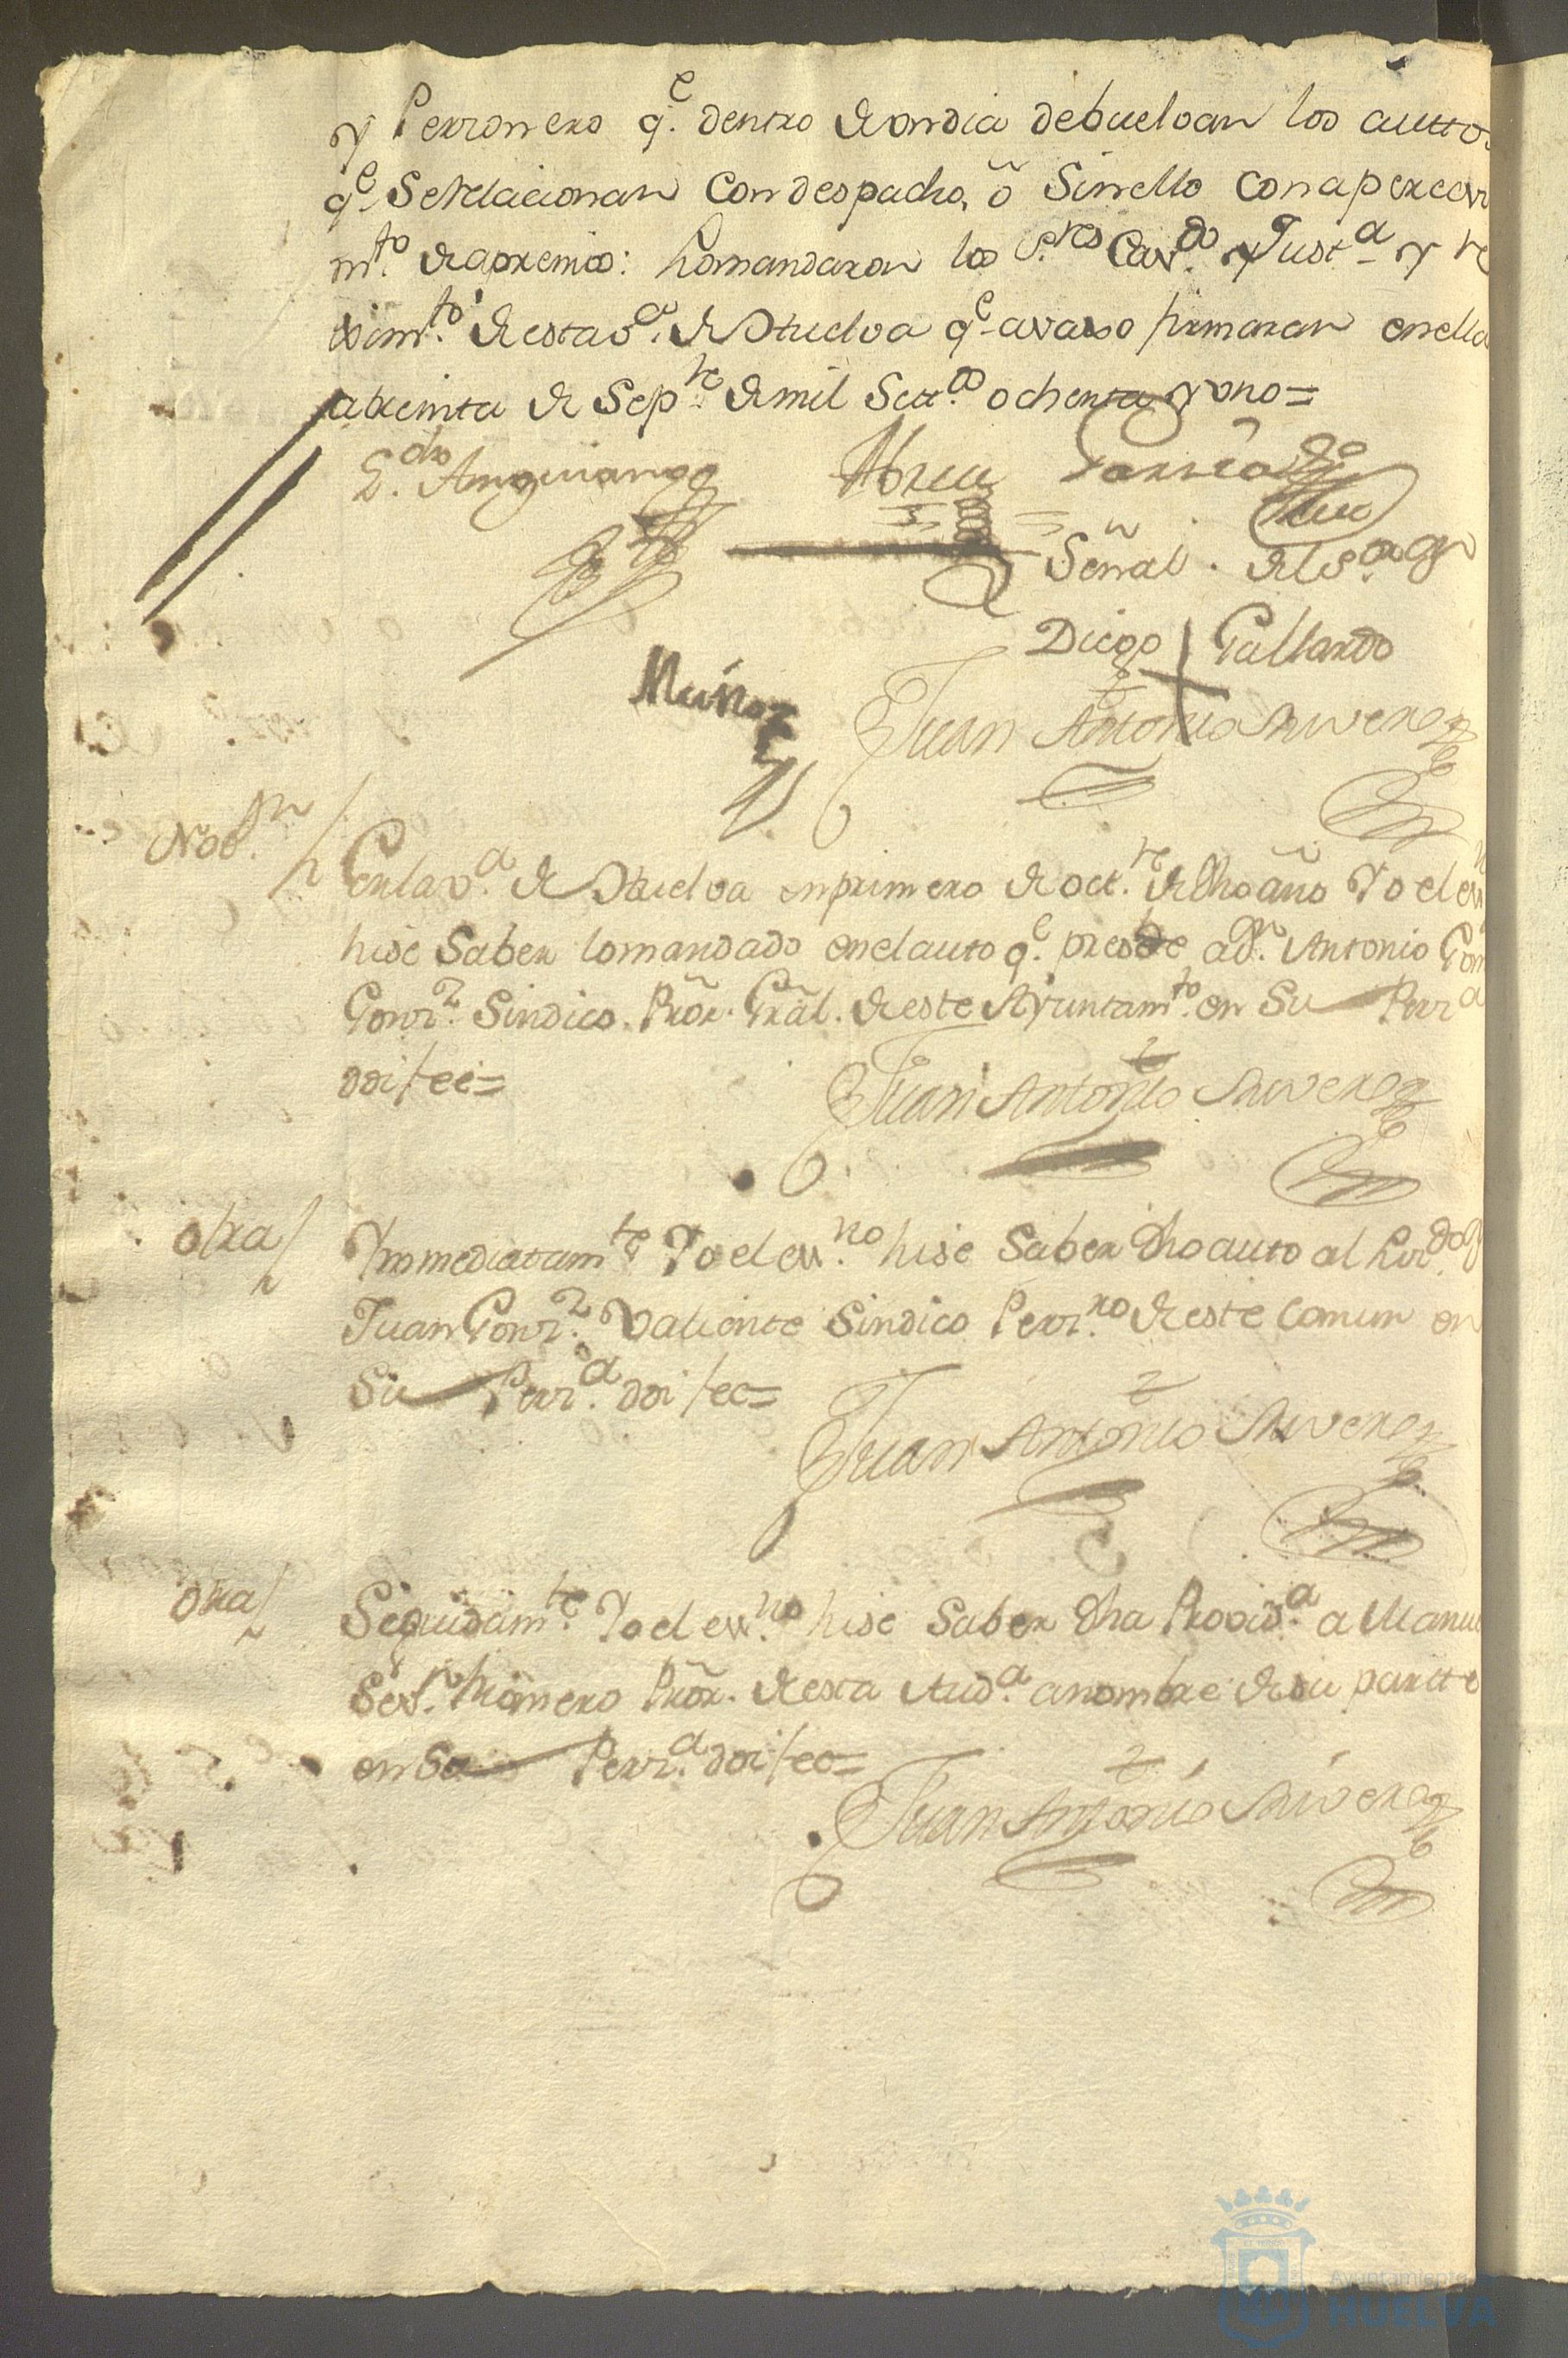 y Personero q.e dentro de un dia debuelvan los autto
q.e se relacionan con despacho, ô sin ello con apercev
m.to de apremio: lo mandaron los S.res Cav.do y Just.a y re
xim.to de esta v.a de Huelva q.e avaxo firmaran en ella
a treinta de Sep.re de mil Sett.os ochenta y uno=
L.do Anguiano Abreu Garrido
Señal. del S.or
Diego + Gallardo
Muñoz
Juan Antonio Suverez
Not.on
En la v.a de Huelva en primero de oct.re de dho año Yo el es
hise saber lo mandado en el auto q.e presede a d.n Antonio
Gonz.z Sindico. Prõr. Grãl. de este Ayuntam.to en su Pers.a
doi fee=
Juan Antonio Suverez
otra
Ynmediatam.te Yo el es.no hise saber dho auto al liz.do
Juan Gonz.z Valiente Sindico Pers.ro de este comun en
su Pers.a doi fee=
Juan Antonio Suverez
otra
Seguidam.te Yo el es.no hise saber dha Provid.a a Manu
Romero Prõr. de esta Aud.a a nombre de su partte
en su Pers.a doi fee=
Juan Antonio Suverez
Ayuntamiento
HUELVA